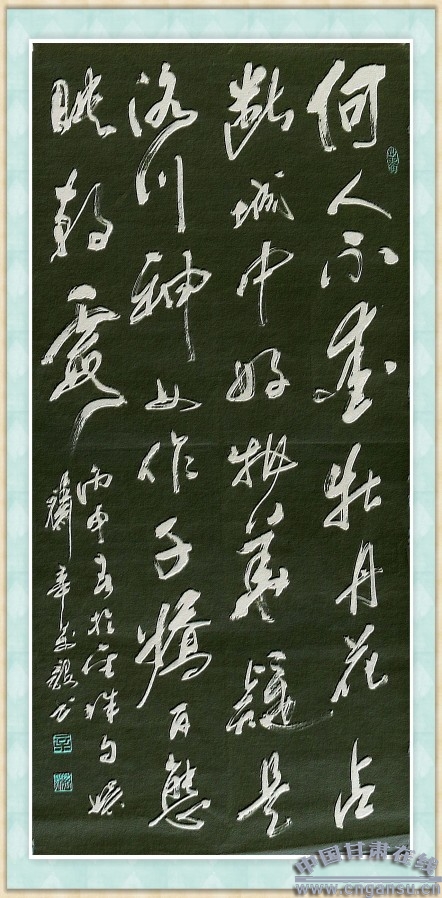 何人不爱牡丹花占
断城中好物華疑是
洛川神女作千嬌百態
映朝霞
丙申春於
中国甘肃在线
www.cngansu.cn